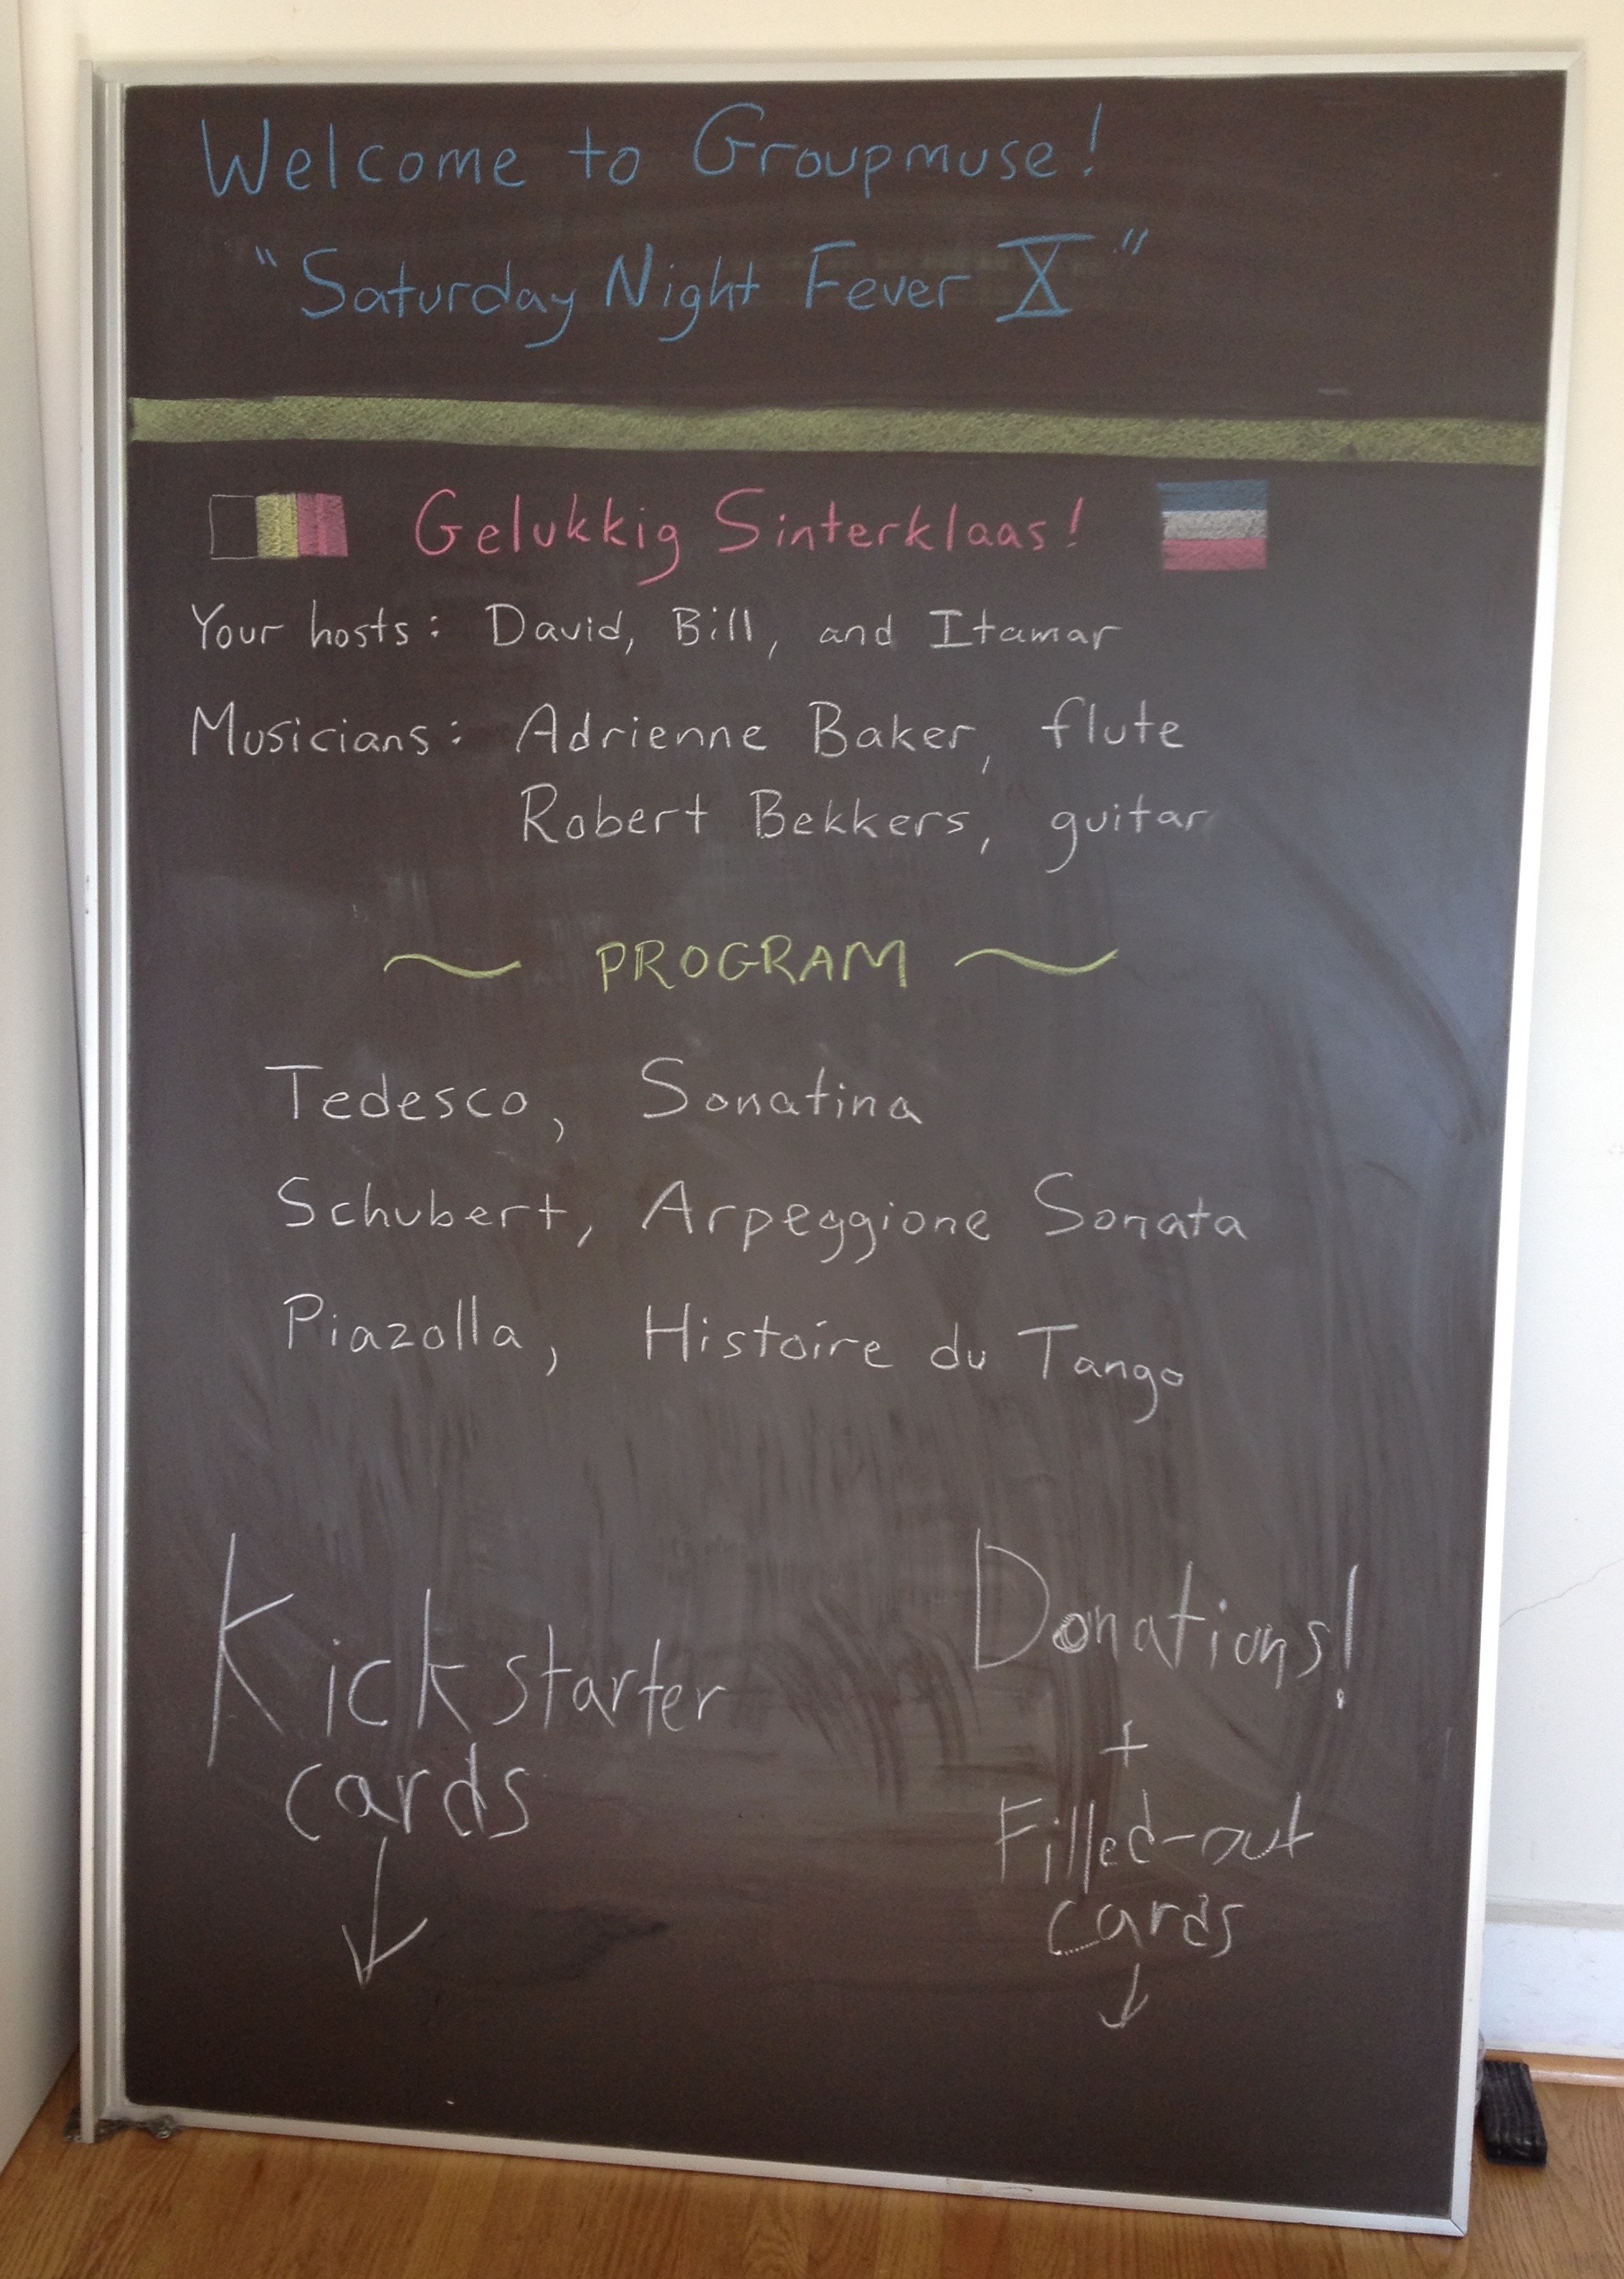 Welcome to Groupmuse!
"Saturday Night Fever X"
Gelukkig Sinterklaas!
Your hosts: David, Bill, and Itamar
Musicians: Adrienne Baker, flute
Robert Bekkers, guitar
~ PROGRAM ~
Tedesco, Sonatina
Schubert, Arpeggione Sonata
Piazolla, Histoire du Tango
Kickstarter
cards
Donations!
+
Filled-out
cards